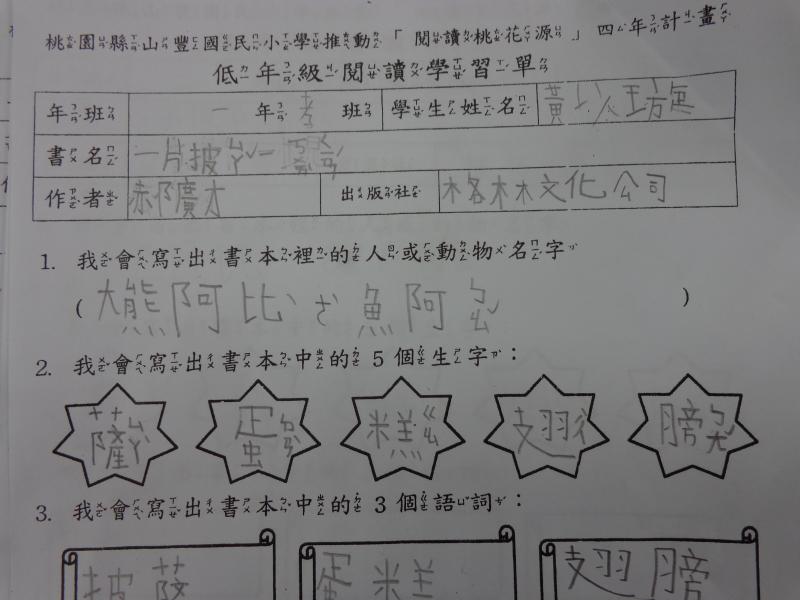 桃園縣山豐國民小學推動「閱讀桃花源」四年計畫
低年級閱讀學習單
年班 一年孝班 學生姓名 黃
書名 一片披ㄙㄚˋ一塊ㄑㄧㄢˊ
作者 郝廣才 出版社 格林文化公司
1. 我會寫出書本裡的人或動物名字
(大熊阿比、ㄊ魚阿ㄅㄠˇ)
2. 我會寫出書本中的5個生字：
薩ㄙㄚˋ 蛋ㄉㄢˋ 糕ㄍㄠ 翅ㄔˋ 膀ㄅㄤˇ
3. 我會寫出書本中的3個語詞：
披薩 蛋糕 翅膀